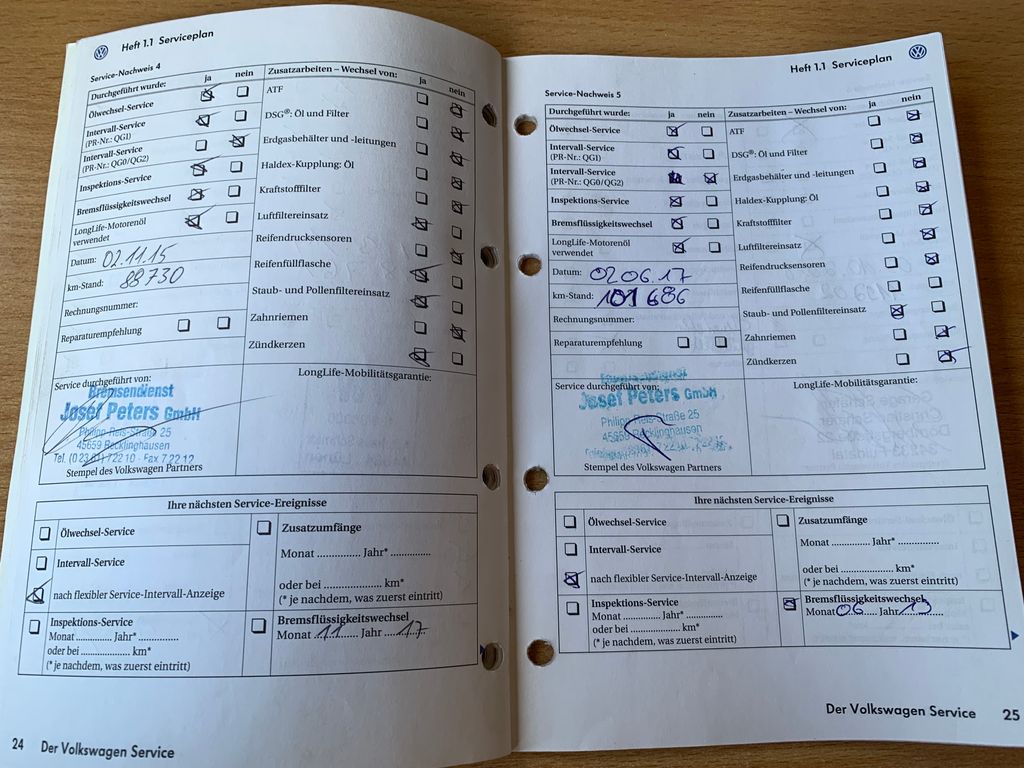 Heft 1.1 Serviceplan
Service-Nachweis 4
Durchgeführt wurde: ja nein
Ölwechsel-Service
Intervall-Service
(PR-Nr.: QG1)
Intervall-Service
(PR-Nr.: QG0/QG2)
Inspektions-Service
Bremsflüssigkeitswechsel
LongLife-Motorenöl
verwendet
Datum: 02.11.15
km-Stand: 88730
Rechnungsnummer:
Reparaturempfehlung
Zusatzarbeiten – Wechsel von: ja nein
ATF
DSG®: Öl und Filter
Erdgasbehälter und -leitungen
Haldex-Kupplung: Öl
Kraftstofffilter
Luftfiltereinsatz
Reifendrucksensoren
Reifenfüllflasche
Staub- und Pollenfiltereinsatz
Zahnriemen
Zündkerzen
Service durchgeführt von:
Bremsendienst
Josef Peters GmbH
Philipp-Reis-Straße 25
45659 Recklinghausen
Tel. (0 23 61) 7 22 10 - Fax 7 22 12
Stempel des Volkswagen Partners
LongLife-Mobilitätsgarantie:
Ihre nächsten Service-Ereignisse
Ölwechsel-Service
Intervall-Service
nach flexibler Service-Intervall-Anzeige
Zusatzumfänge
Monat ............... Jahr* ...............
oder bei ..................... km*
(* je nachdem, was zuerst eintritt)
Inspektions-Service
Monat ............. Jahr* ..............
oder bei ..................... km*
(* je nachdem, was zuerst eintritt)
Bremsflüssigkeitswechsel
Monat 11 Jahr 17
24 Der Volkswagen Service
Heft 1.1 Serviceplan
Service-Nachweis 5
Durchgeführt wurde: ja nein
Ölwechsel-Service
Intervall-Service
(PR-Nr.: QG1)
Intervall-Service
(PR-Nr.: QG0/QG2)
Inspektions-Service
Bremsflüssigkeitswechsel
LongLife-Motorenöl
verwendet
Datum: 02.06.17
km-Stand: 101 686
Rechnungsnummer:
Reparaturempfehlung
Zusatzarbeiten – Wechsel von: ja nein
ATF
DSG®: Öl und Filter
Erdgasbehälter und -leitungen
Haldex-Kupplung: Öl
Kraftstofffilter
Luftfiltereinsatz
Reifendrucksensoren
Reifenfüllflasche
Staub- und Pollenfiltereinsatz
Zahnriemen
Zündkerzen
Service durchgeführt von:
Josef Peters GmbH
Philipp-Reis-Straße 25
45659 Recklinghausen
Stempel des Volkswagen Partners
LongLife-Mobilitätsgarantie:
Ihre nächsten Service-Ereignisse
Ölwechsel-Service
Intervall-Service
nach flexibler Service-Intervall-Anzeige
Zusatzumfänge
Monat ............... Jahr* ...............
oder bei ..................... km*
(* je nachdem, was zuerst eintritt)
Inspektions-Service
Monat ............. Jahr* ..............
oder bei ..................... km*
(* je nachdem, was zuerst eintritt)
Bremsflüssigkeitswechsel
Monat 06 Jahr 19
Der Volkswagen Service 25